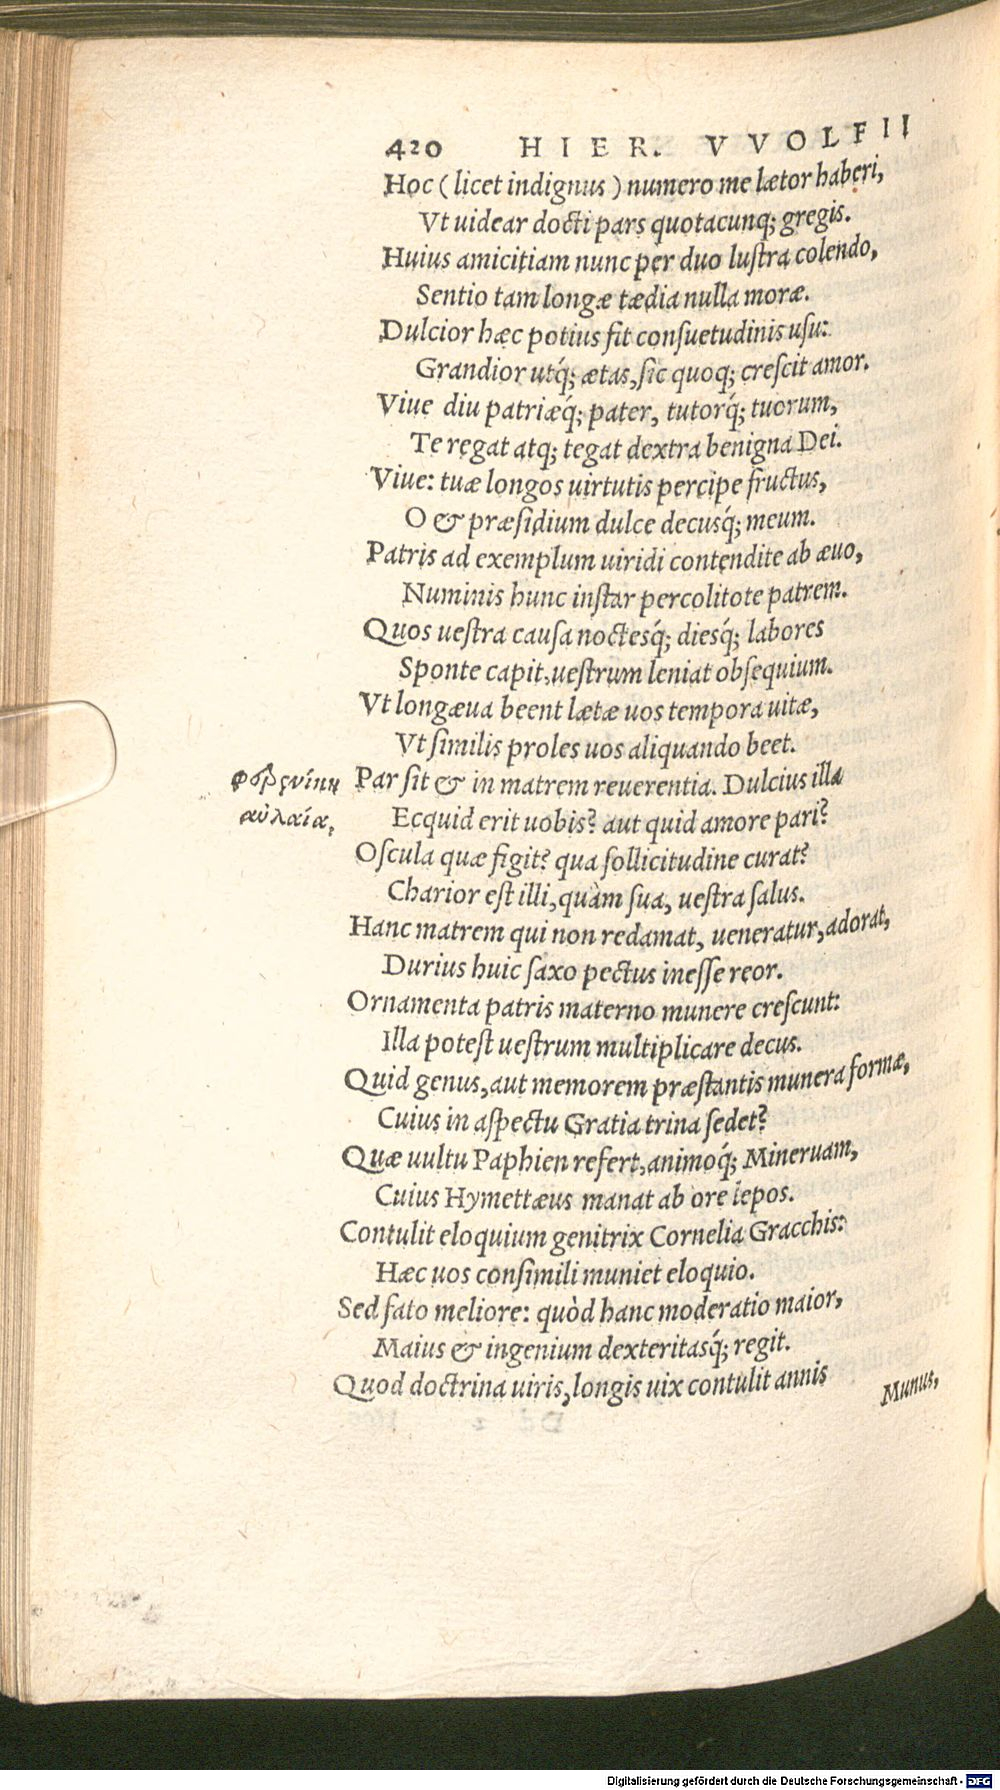 420 HIER. VVOLFII
Hoc (licet indignus) numero me lætor haberi,
Vt uidear docti pars quotacunq; gregis.
Huius amicitiam nunc per duo lustra colendo,
Sentio tam longæ tædia nulla moræ.
Dulcior hæc potius fit consuetudinis usu:
Grandior utq́; ætas, sic quoq; crescit amor.
Viue diu patriæq́; pater, tutorq́; tuorum,
Te regat atq; tegat dextra benigna Dei.
Viue: tuæ longos uirtutis percipe fructus,
O & præsidium dulce decusq́; meum.
Patris ad exemplum uiridi contendite ab æuo,
Numinis hunc instar percolitote patrem.
Quos uestra causa noctesq́; diesq́; labores
Sponte capit, uestrum leniat obsequium.
Vt longæua beent lætæ uos tempora uitæ,
Vt similis proles uos aliquando beet.
Par sit & in matrem reuerentia. Dulcius illa
αὐλαία,
Ecquid erit uobis? aut quid amore pari?
Oscula quæ figit? qua sollicitudine curat?
Charior est illi, quàm sua, uestra salus.
Hanc matrem qui non redamat, ueneratur, adorat,
Durius huic saxo pectus inesse reor.
Ornamenta patris materno munere crescunt:
Illa potest uestrum multiplicare decus.
Quid genus, aut memorem præstantis munera formæ,
Cuius in aspectu Gratia trina sedet?
Quæ uultu Paphien refert, animoq́; Mineruam,
Cuius Hymettæus manat ab ore lepos.
Contulit eloquium genitrix Cornelia Gracchis:
Hæc uos consimili muniet eloquio.
Sed fato meliore: quòd hanc moderatio maior,
Maius & ingenium dexteritasq́; regit.
Quod doctrina uiris, longis uix contulit annis
Munus,
Digitalisierung gefördert durch die Deutsche Forschungsgemeinschaft - DFG